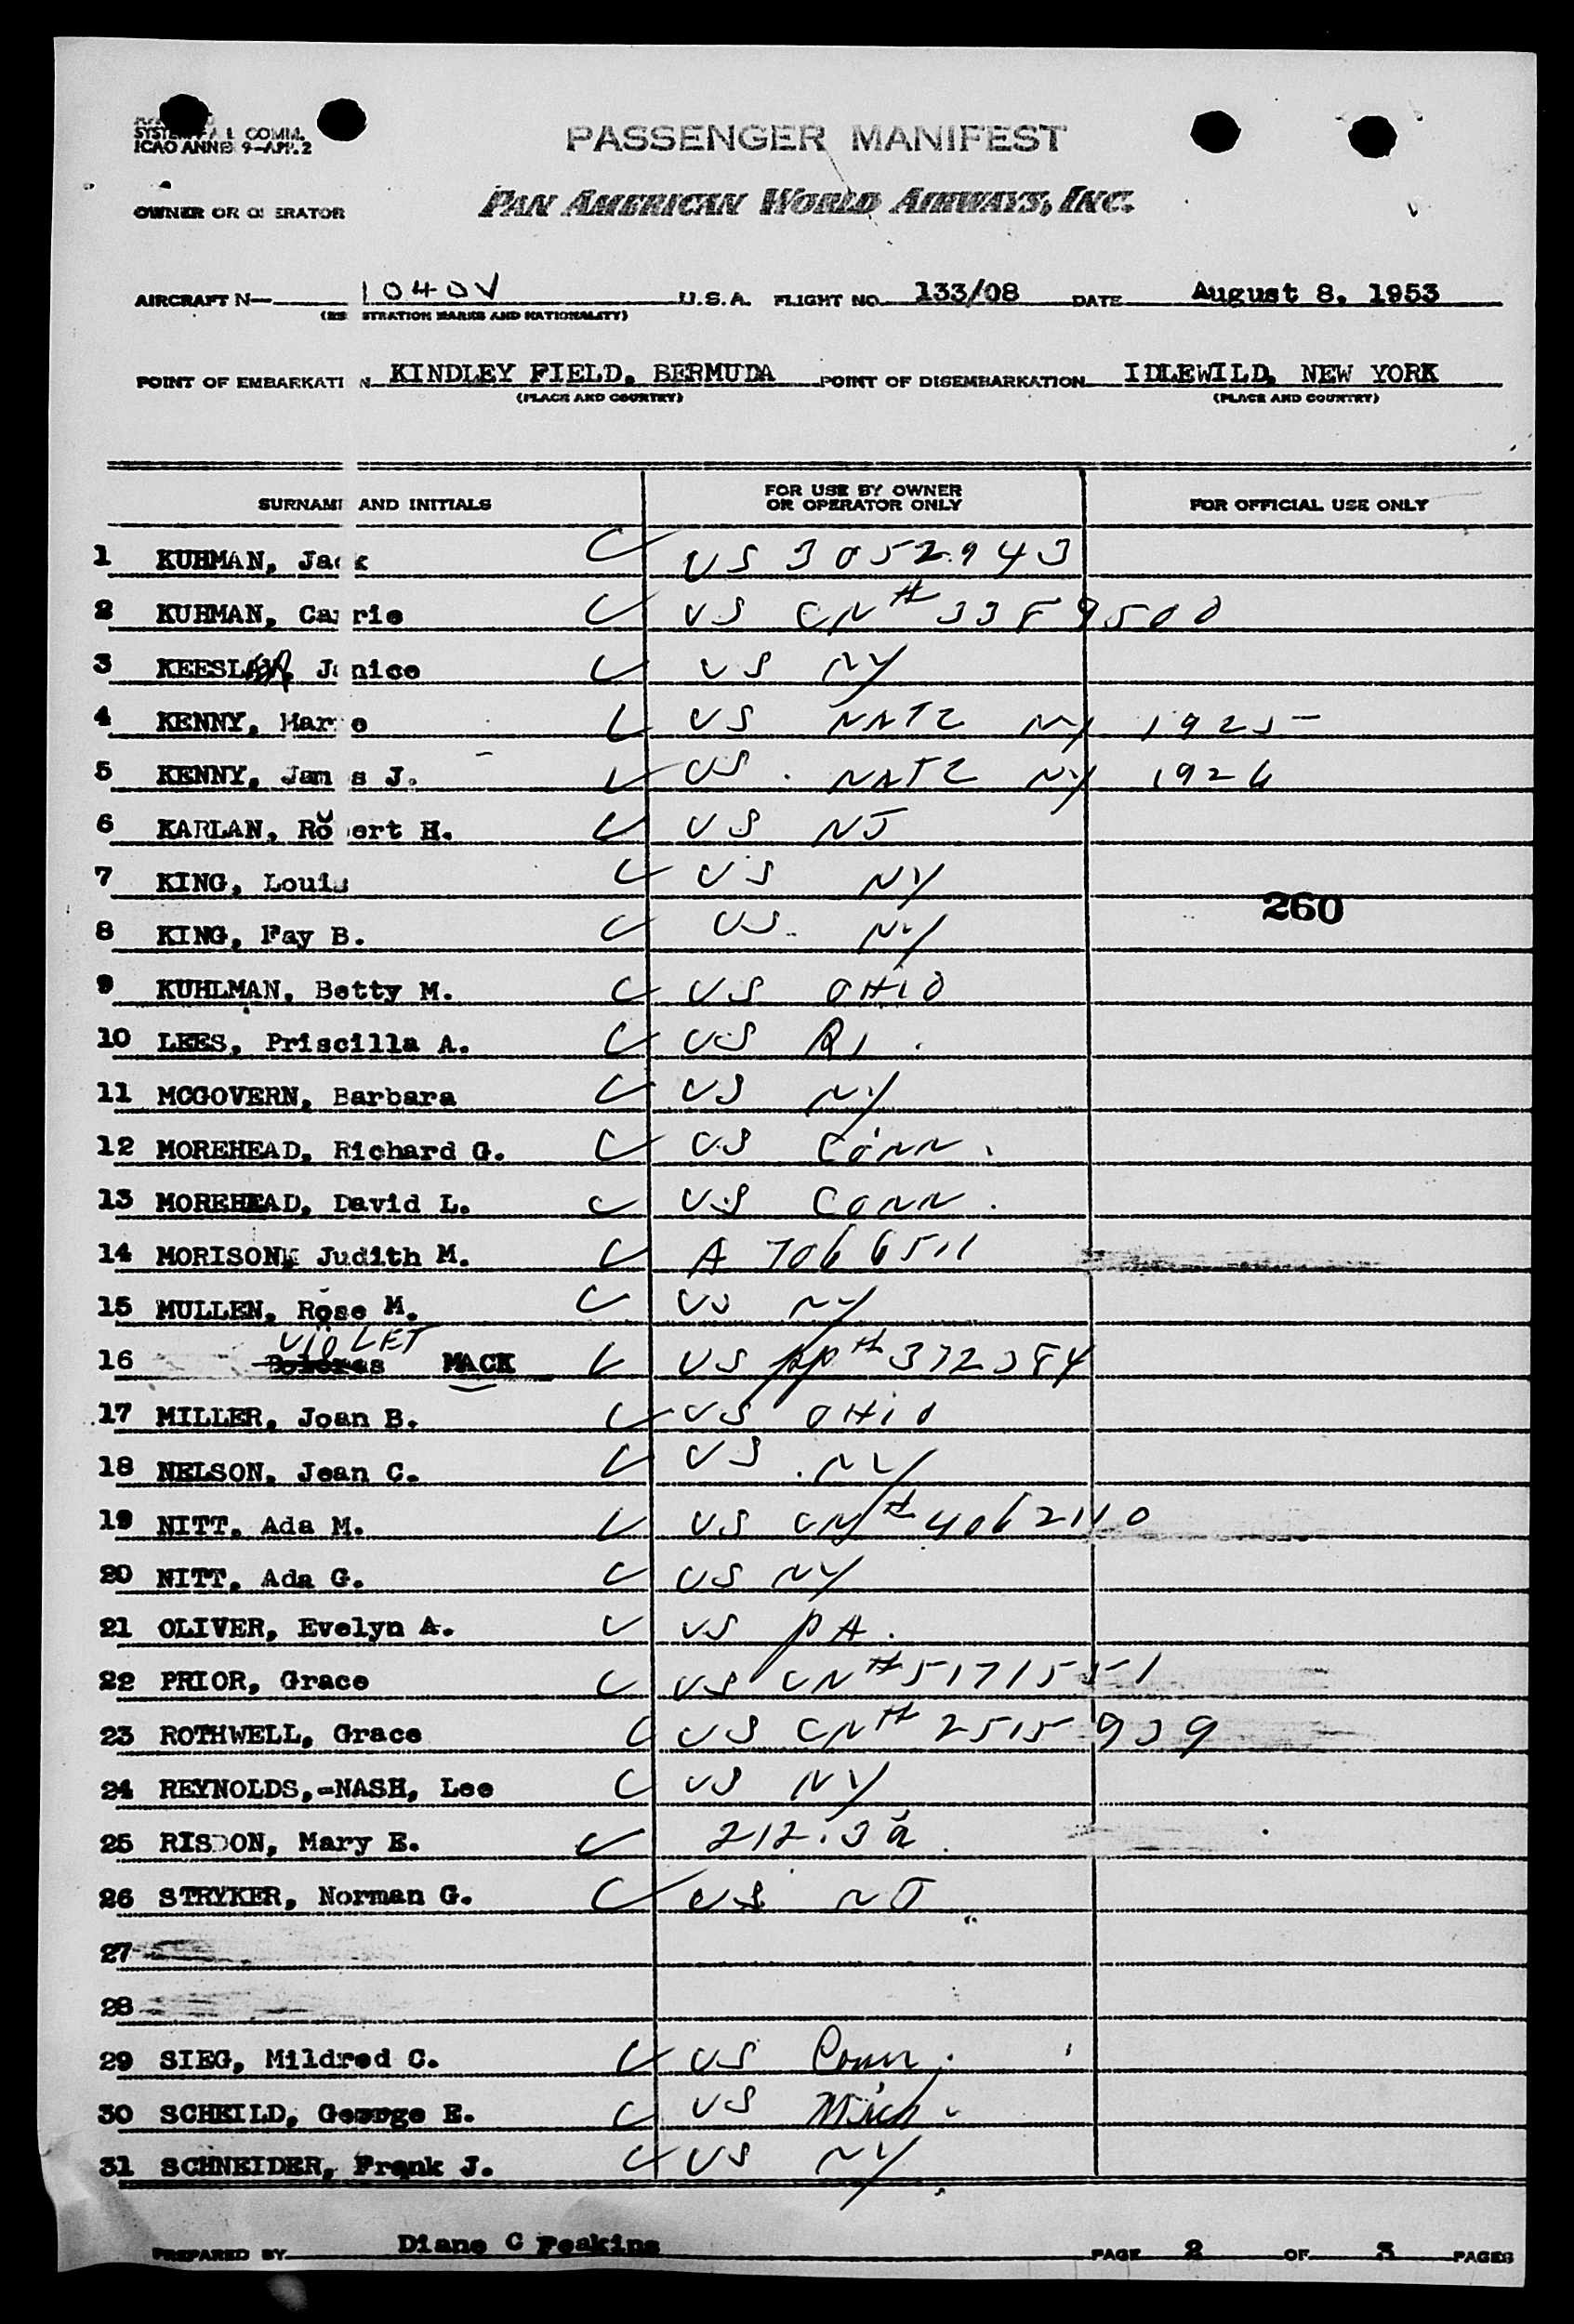 SYSTEM COMM.
ICAO ANNEX 9-APP. 2
PASSENGER MANIFEST
OWNER OR OPERATOR PAN AMERICAN WORLD AIRWAYS, INC.
AIRCRAFT N— 1040V U.S.A. FLIGHT NO. 133/08 DATE August 8, 1953
(REGISTRATION MARKS AND NATIONALITY)
POINT OF EMBARKATION KINDLEY FIELD, BERMUDA POINT OF DISEMBARKATION IDLEWILD, NEW YORK
(PLACE AND COUNTRY) (PLACE AND COUNTRY)
SURNAME AND INITIALS FOR USE BY OWNER OR OPERATOR ONLY FOR OFFICIAL USE ONLY
1 KUHMAN, Jack US 3052943
2 KUHMAN, Carrie US CN# 3389500
3 Janice US NY
4 KENNY, Marie US NATZ NY 1925
5 KENNY, James J. US NATZ NY 1926
6 KARLAN, Robert H. US NJ
7 KING, Louis US NY
260
8 KING, Fay B. US NY
9 KUHLMAN, Betty M. US OHIO
10 LEES, Priscilla A. US RI.
11 MCGOVERN, Barbara US NY
12 MOREHEAD, Richard G. US CONN.
13 MOREHEAD, David L. US CONN.
14 MORISON, Judith M. A 7066511
15 MULLEN, Rose M. US NY
VIOLET
16 Dolores MACK US PP# 372384
17 MILLER, Joan B. US OHIO
18 NELSON, Jean C. US NY
19 NITT. Ada M. US CN# 4062110
20 NITT. Ada G. US NY
21 OLIVER, Evelyn A. US PA.
22 PRIOR, Grace US CN# 5171551
23 ROTHWELL, Grace US CN# 2515939
24 REYNOLDS,-NASH, Lee US NY
25 RISDON, Mary E. 212.3a
26 STRYKER, Norman G. US NJ
27
28
29 SIEG, Mildred C. US Conn.
30 SCHEILD, George E. US Mich.
31 SCHNEIDER, Frank J. US NY
PREPARED BY Diane C Peakins PAGE 2 OF 3 PAGES